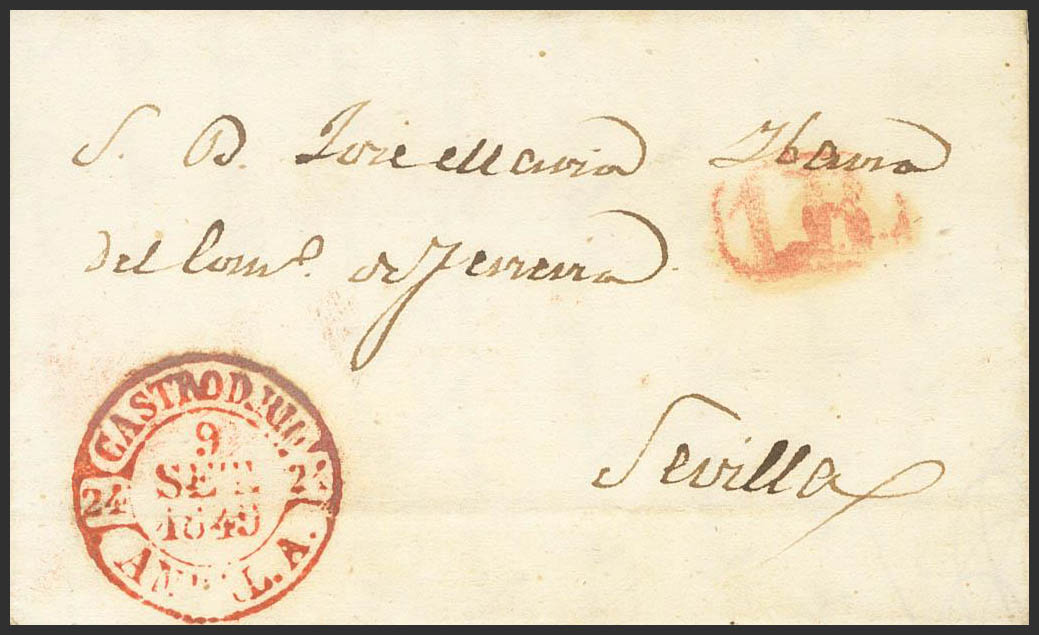 S. D. Jose Maria Ybarra
1R.
del Com.º de Jerrería
Sevilla
CASTRO D.
9
SET.
1849
24
24
AND.L.A.